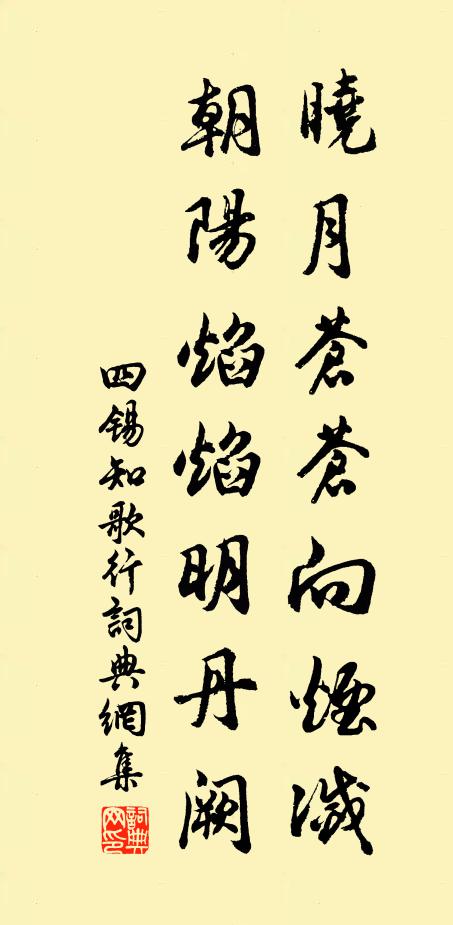 曉月蒼蒼向煙滅
朝陽焰焰明丹闕
四錫知歌行詞典網集
詞典
网印